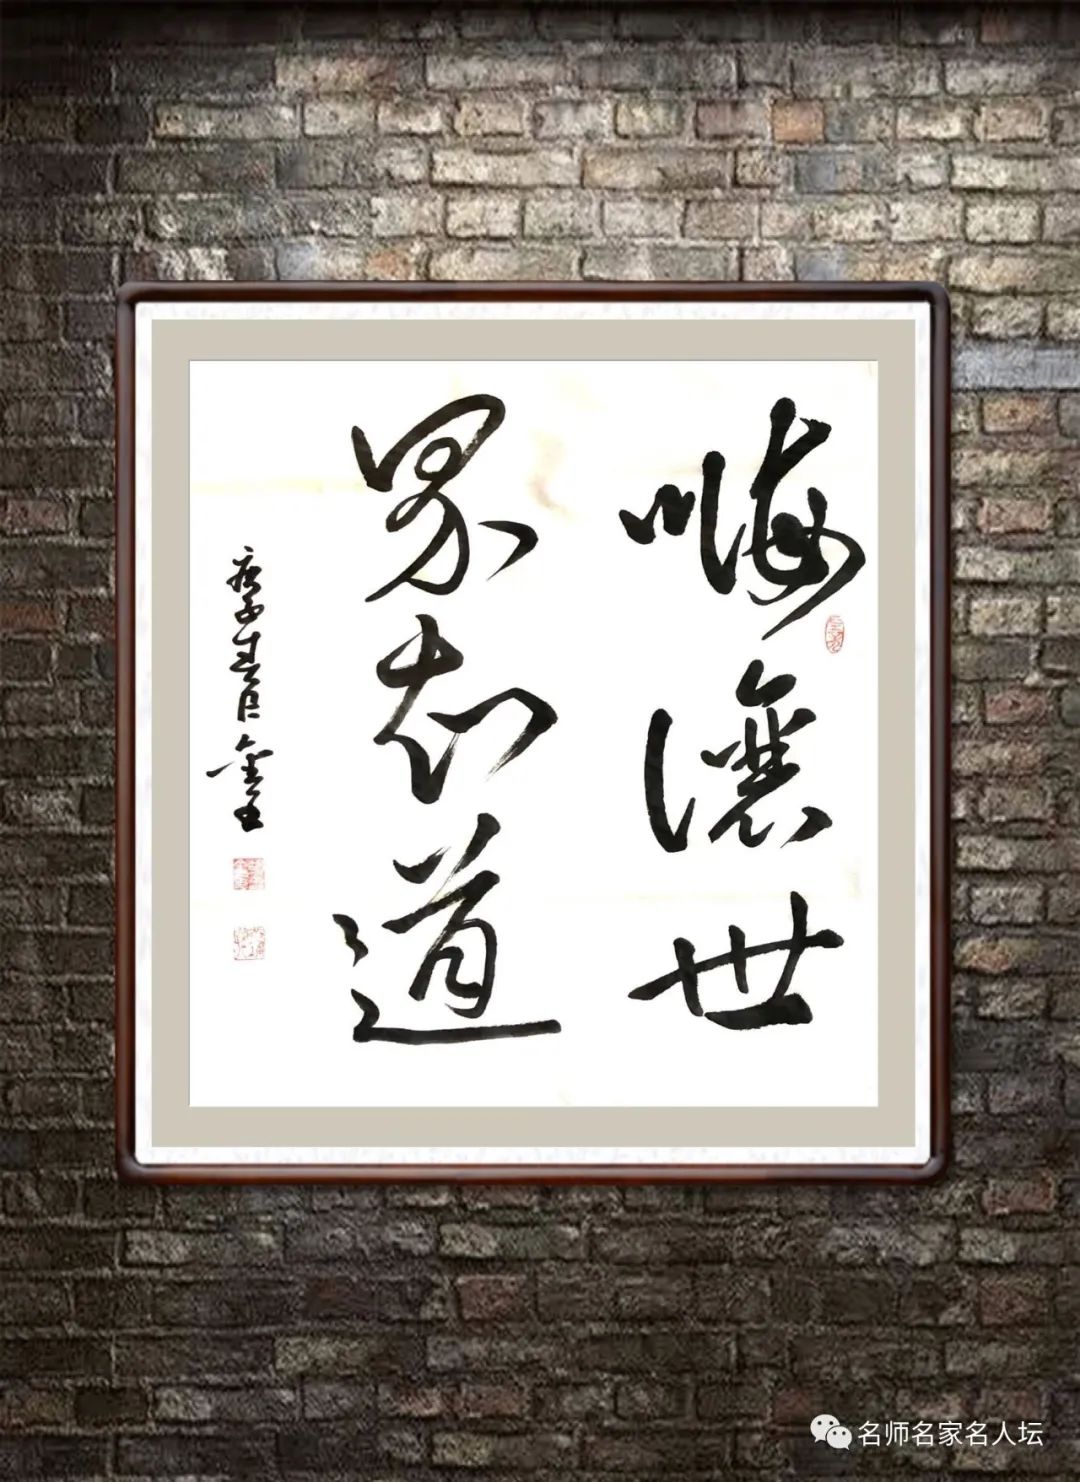 嗨让世
界知道
庚子春月金玉
名师名家名人坛